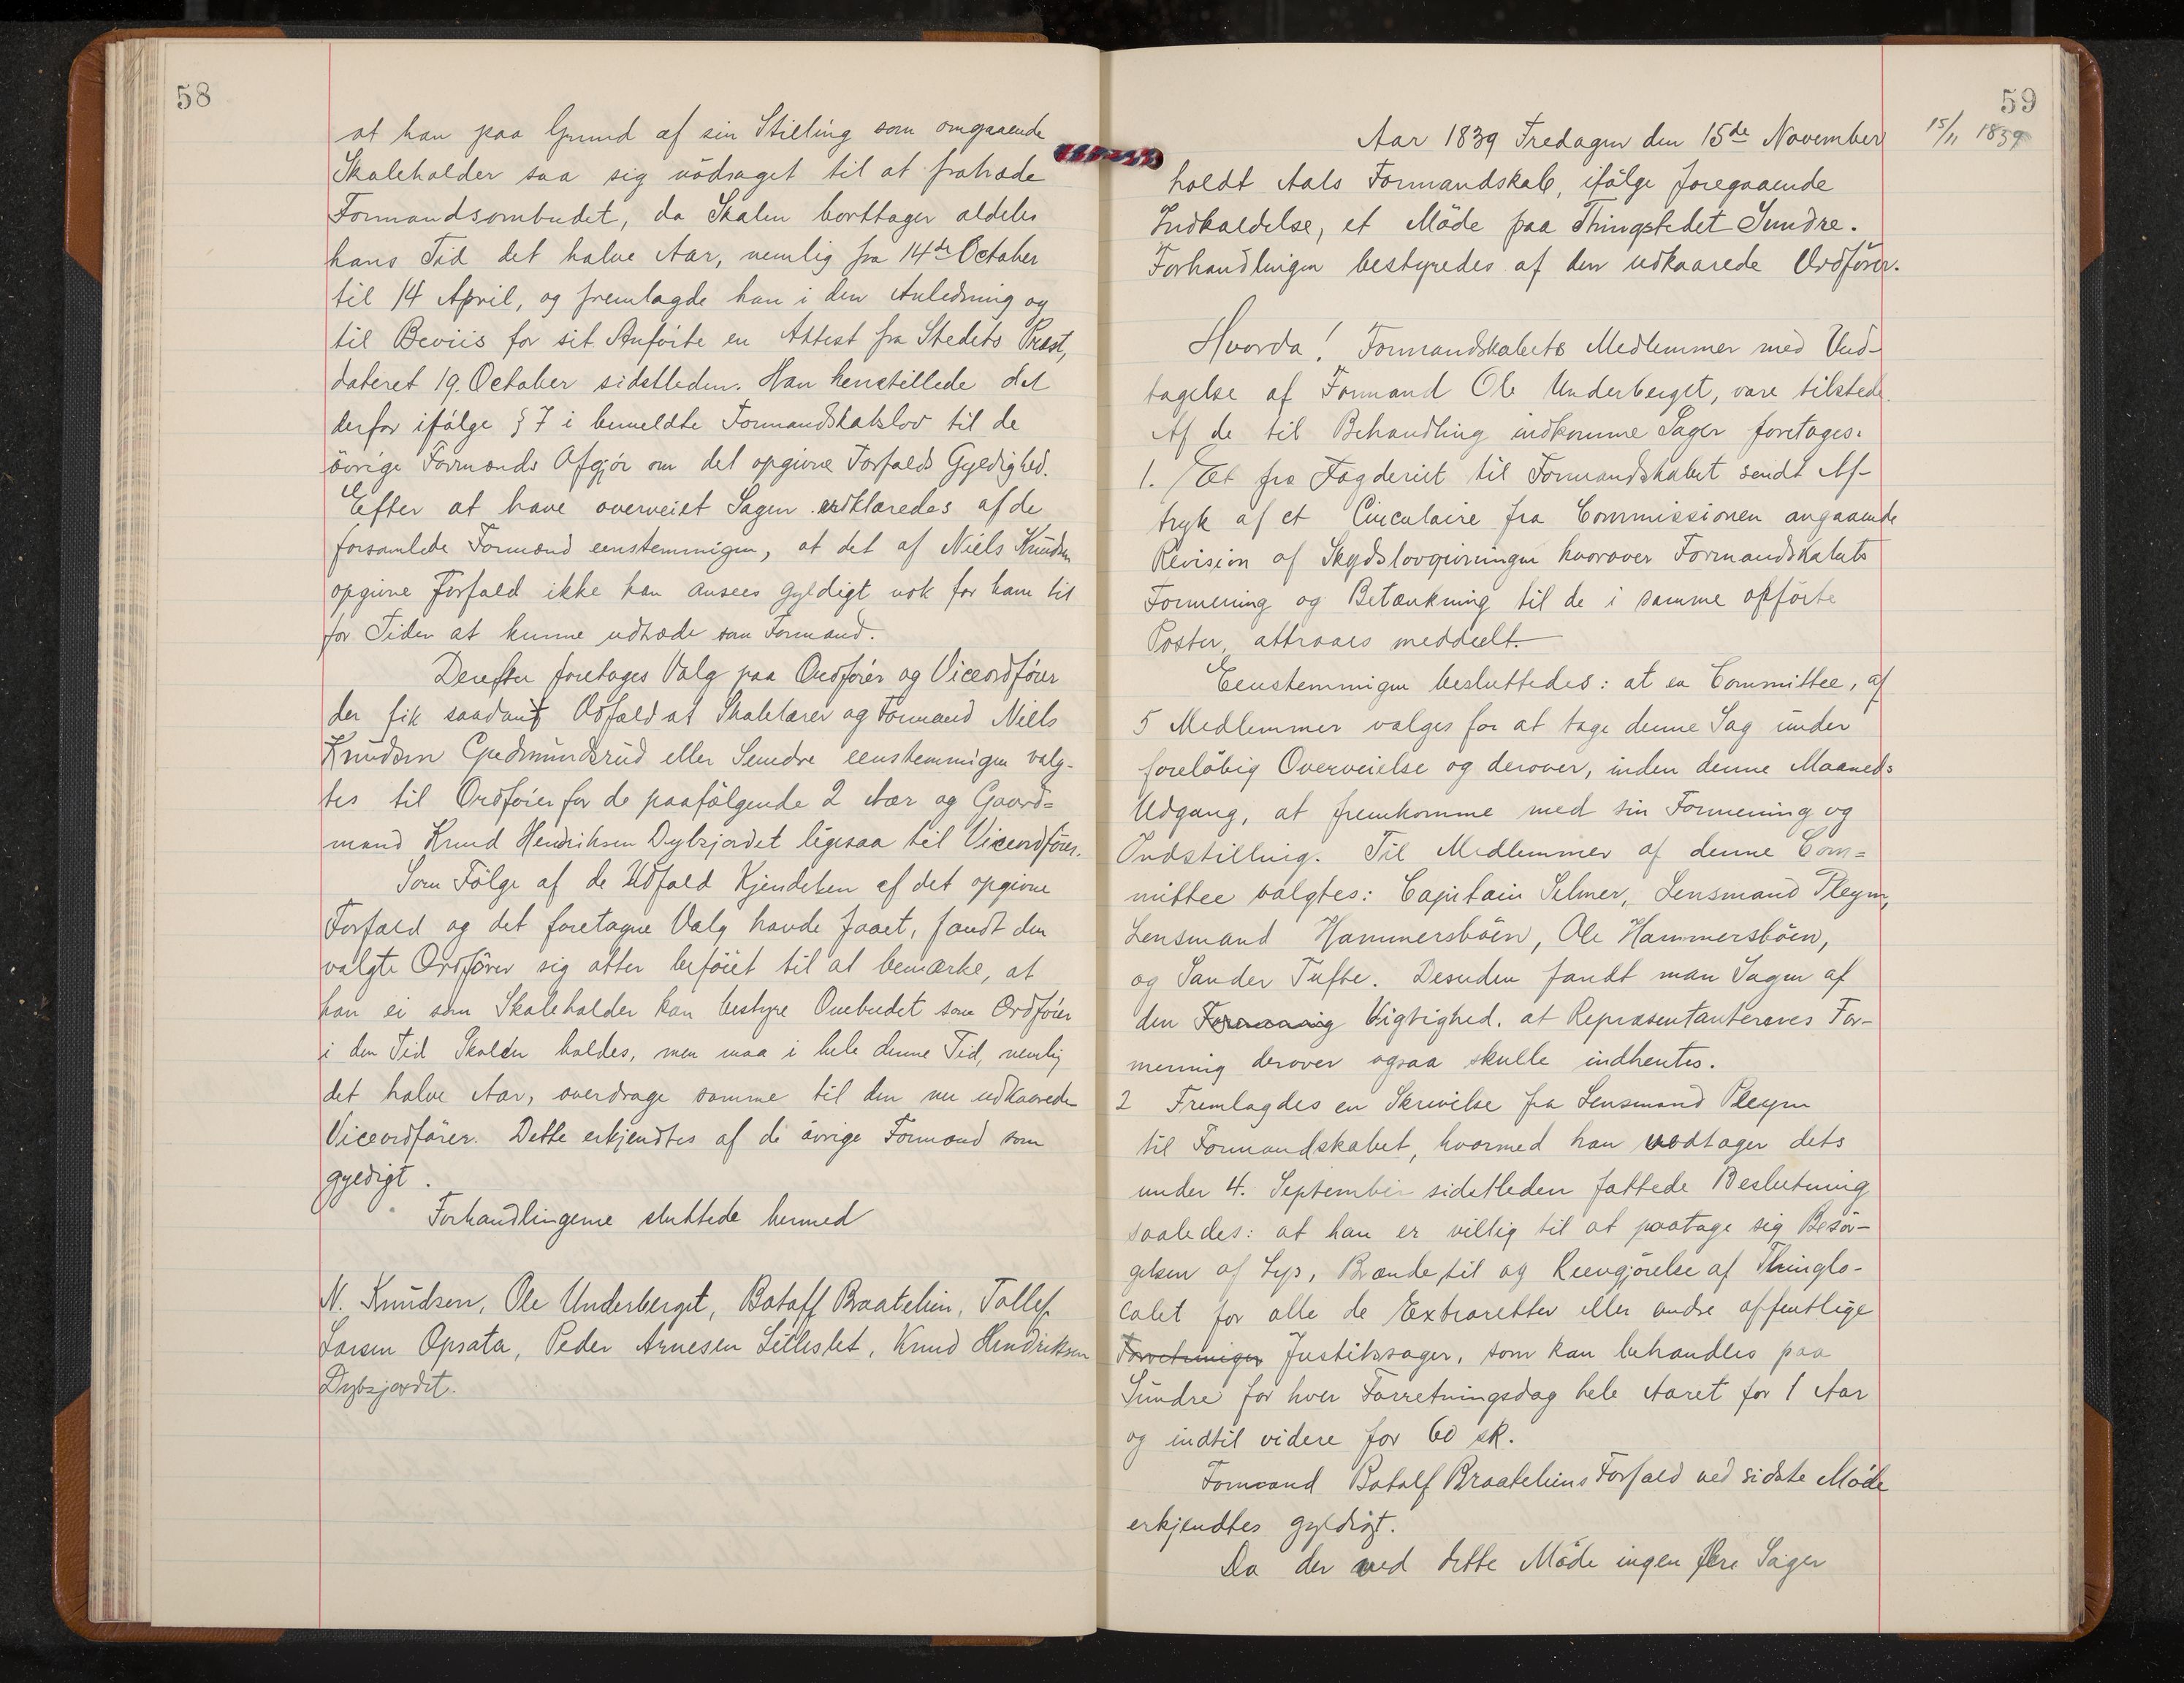 58
at han paa Grund af sin Stilling som omgaaende
Skoleholder saa sig nödsaget til at fratræde
Formandsombudet, da Skolen borttager aldeles
hans Tid det halve Aar, nemlig fra 14de October
til 14 April, og fremlagde han i den Anledning og
til Beviis for sit Anförte en Attest fra Stedets Præst,
dateret 19. October sidstleden. Han henstillede det
derfor ifölge § 7 i bemeldte Formandskabslov til de
övrige Formænds Afgjör om det opgivne Forfalds Gyldighed.
Efter at have overveiet Sagen erklæredes af de
forsamlede Formænd eenstemmigen, at det af Niels Knudsen
opgivne Forfald ikke kan ansees gyldigt nok for ham til
for Tiden at kunne udtræde som Formand.
Derefter foretages Valg paa Ordförer og Viceordförer
der fik saadant Udfald at Skolelærer og Formand Niels
Knudsen Gudmundsrud eller Sundre eenstemmigen valg-
tes til Ordförer for de paafölgende 2 Aar og Gaard=
mand Knud Hendriksen Dybsjordet ligesaa til Viceordförer.
Som Fölge af de Udfald Kjendelsen af det opgivne
Forfald og det foretagne Valg havde faaet, fandt den
valgte Ordförer sig atter beföiet til at bemærke, at
han ei som Skoleholder kan bestyre Ombudet som Ordförer
i den Tid Skolen holdes, men maa i hele denne Tid, nemlig
det halve Aar, overdrage samme til den nu udkaarede
Viceordförer. Dette erkjendtes af de övrige Formænd som
gyldigt.
Forhandlingerne sluttede hermed
N. Knudsen, Ole Underberget, Botolf Braatelien, Tollef
Larsen Opsata, Peder Arnesen Lilleslet, Knud Hendriksen
Dybsjordet.
59
15/11 1839
Aar 1839 Fredagen den 15de November
holdt Aals Formandskab, ifölge foregaaende
Indkaldelse, et Möde paa Thingstedet Sundre.
Forhandlingen bestyredes af den udkaarede Ordförer.
Hvorda! Formandskabets Medlemmer med Und-
tagelse af Formand Ole Underberget, vare tilstede.
Af de til Behandling indkomne Sager foretages:
1. Et fra Fogderiet til Formandskabet sendt Af-
tryk af et Circulaire fra Commissionen angaaende
Revision af Skydslovgivningen hvorover Formandskabets
Formening og Betænkning til de i samme opförte
Poster, attraaes meddeelt.
Eenstemmigen besluttedes: at en Committee, af
5 Medlemmer vælges for at tage denne Sag under
forelöbig Overveielse og derover, inden denne Maaneds
Udgang, at fremkomme med sin Formening og
Indstilling. Til Medlemmer af denne Com=
mittee valgtes: Capitain Selmer, Lensmand Pleym,
Lensmand Hammersböen, Ole Hammersböen,
og Sander Tufte. Desuden fandt man Sagen af
den Formening Vigtighed, at Repræsentanternes For-
mening derover ogsaa skulle indhentes.
2 Fremlagdes en Skrivelse fra Lensmand Pleym
til Formandskabet, hvormed han modtager dets
under 4. September sidstleden fattede Beslutning
saaledes: at han er villig til at paatage sig Besör-
gelsen af Lys, Brænde til og Reengjörelse af Thinglo-
calet for alle de Extraretter eller andre offentlige
Forretninger Justitssager, som kan behandles paa
Sundre for hver Forretningsdag hele Aaret for 1 Aar
og indtil videre for 60 sk.
Formand Botolf Braateliens Forfald ved sidste Möde
erkjendtes gyldigt.
Da der ved dette Möde ingen flere Sager